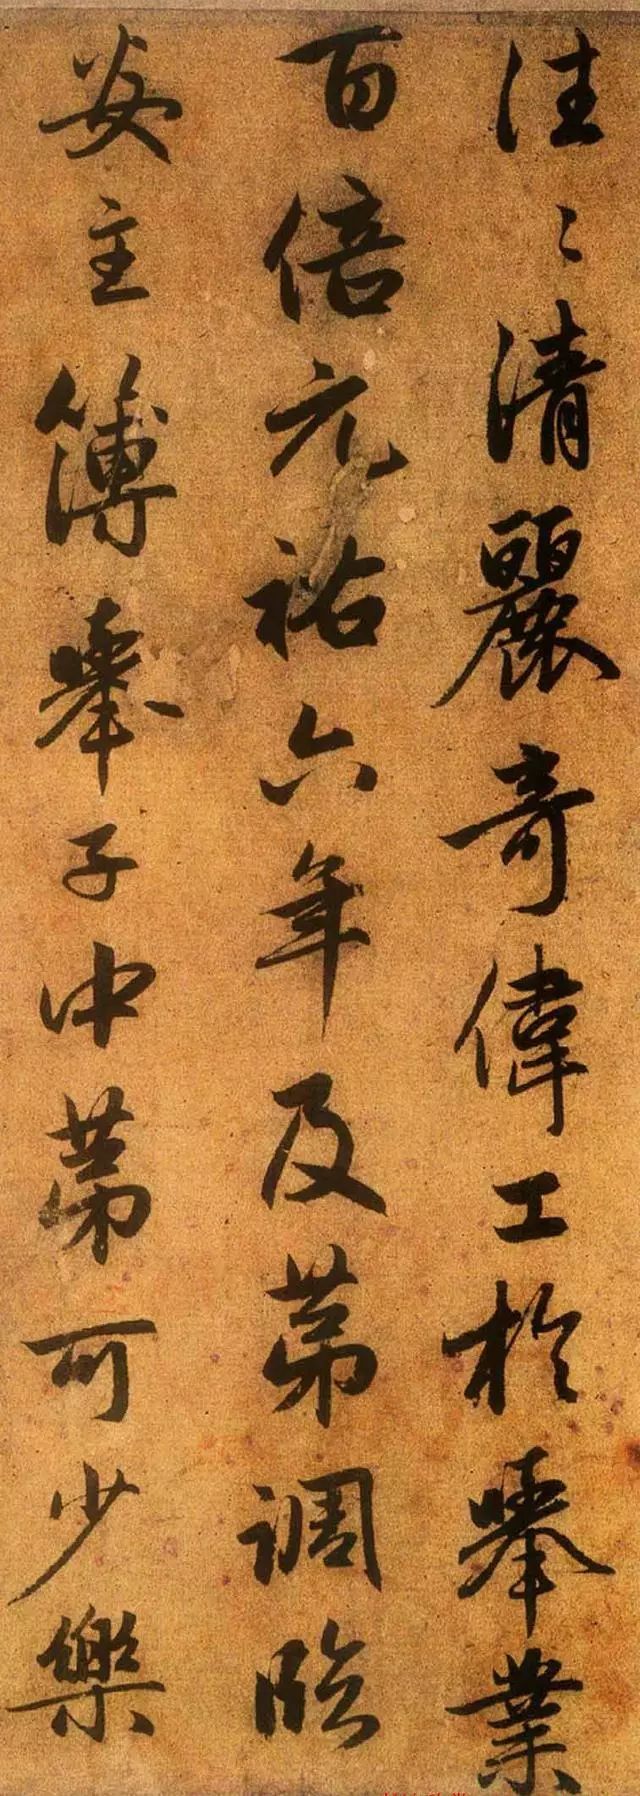 往〻清麗奇偉工於舉業
百倍元祐六年及第調臨
安主簿舉子中第可少樂